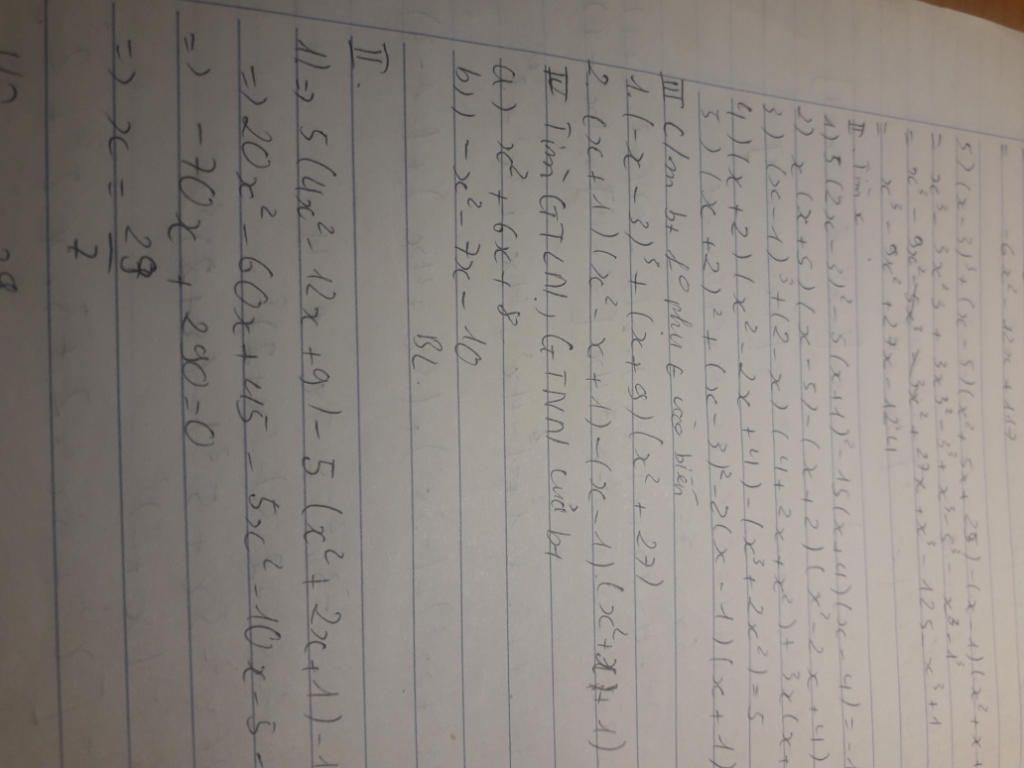 = 6x² - 12x + 117
5) (x-3)³ + (x-5)(x² + 5x + 25) - (x-1)(x² + x +
= x³ - 3x²3 + 3x3² - 3³ + x³ - 5³ - x³ - 1³
= x³ - 9x² + 27x + x³ - 125 - x³ + 1
= x³ - 9x² + 27x - 124
II Tìm x
1) 5(2x-3)² - 5(x+1)² - 15(x+4)(x-4) = -1
2) x(x+5)(x-5) - (x+2)(x² - 2x + 4)
3) (x-1)³ + (2-x)(4 + 2x + x²) + 3x(x+
4) (x+2)(x² - 2x + 4) - (x³ + 2x²) = 5
5) (x+2)² + (x-3)² - 2(x-1)(x+1)
III C/m bt 1º phụ € vào biến
1. (-x-3)³ + (x+9)(x² + 27)
2. (x+1)(x² - x + 1) - (x-1)(x² + x + 1)
IV Tìm GTLN, GTNN của bt
a) x² + 6x + 8
b) -x² - 7x - 10
BL.
II.
1) => 5(4x² - 12x + 9) - 5(x² + 2x + 1) - 1
=> 20x² - 60x + 45 - 5x² - 10x - 5 -
=> -70x + 290 = 0
=> x = 29/7